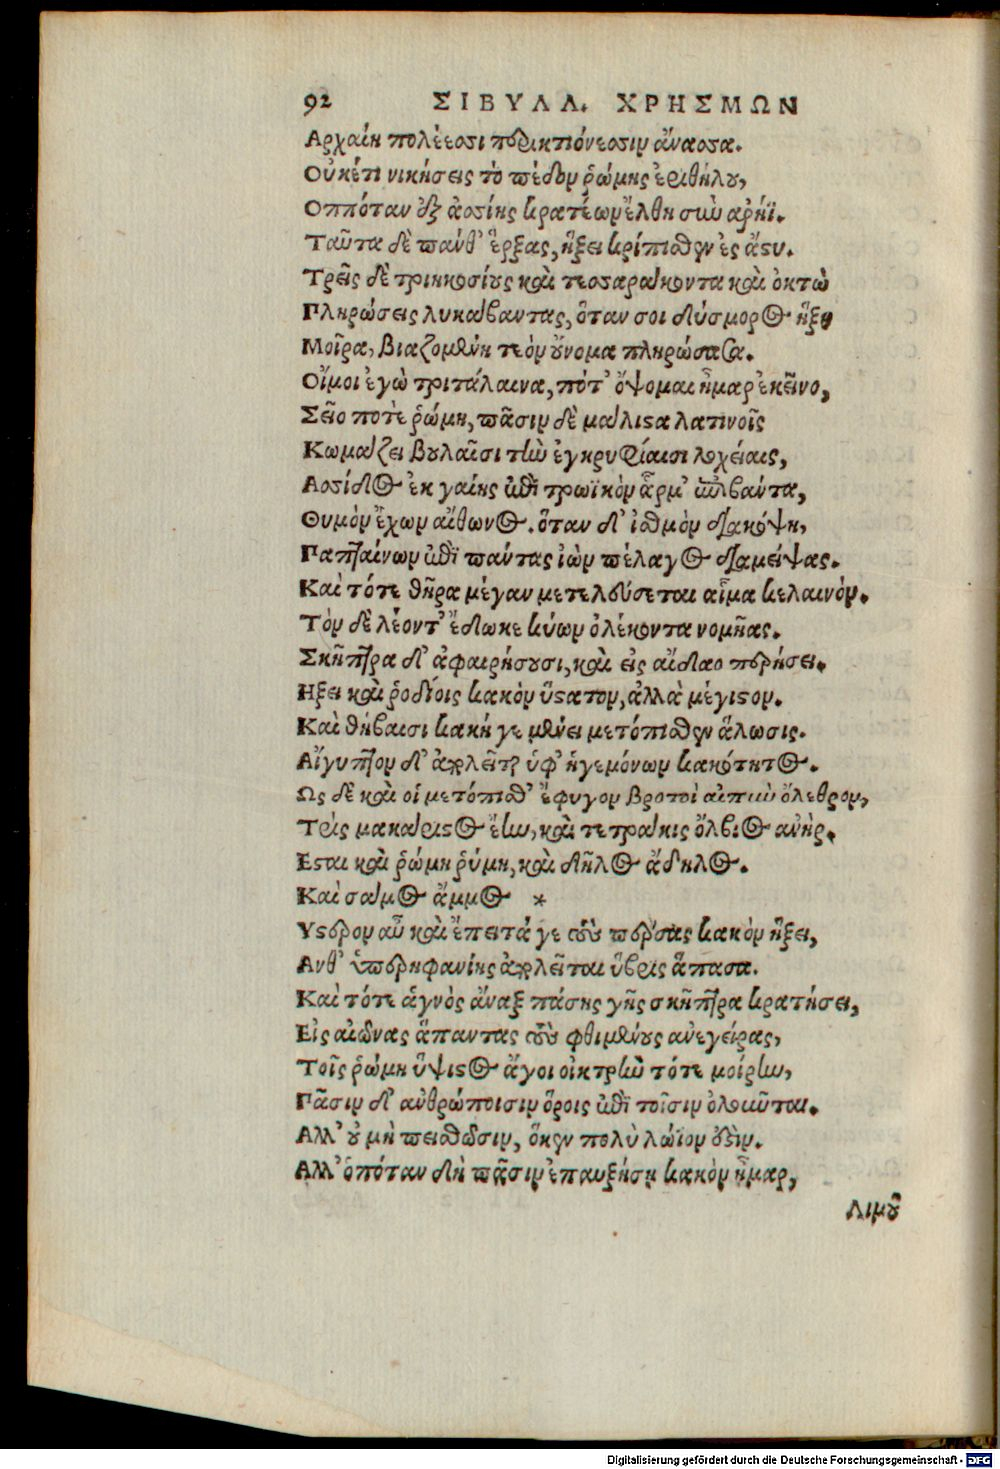 92 ΣΙΒΥΛΛ. ΧΡΗΣΜΩΝ
Αρχαίη πολέεσσι περικτιόνεσσιν ἄνασσα.
Οὐκέτι νικήσεις τὸ πέδον ῥώμης ἐριθήλου,
Οππόταν ἐξ ἀσσίης κρατέων ἔλθη σὺν αρήϊ.
Ταῦτα δὲ πάνθ' ἕρξας, ἥξει κρίπισθεν ἐς ἄστυ.
Τρεῖς δὲ τριηκοσίους καὶ τεσσαράκοντα καὶ ὀκτὼ
Πληρώσεις λυκάβαντας, ὅταν σοι δύσμορος ἥξει
Μοῖρα, βιαζομένη τεὸν οὔνομα πληρώσασα.
Οἴμοι ἐγὼ τριτάλαινα, πότ' ὄψομαι ἦμαρ ἐκεῖνο,
Σεῖο ποτὲ ῥώμη, πᾶσιν δὲ μάλιστα λατινοῖς
Κωμάζει βουλαῖσι τὴν ἐγκρυφίαισι λοχείαις,
Ασσίδος ἐκ γαίης ἐπὶ τρωϊκὸν ἅρμ' ἐπιβάντα,
Θυμὸν ἔχων αἴθωνος. ὅταν δ' ἰσθμὸν διακόψη,
Παπταίνων ἐπὶ πάντας ἰὼν πέλαγος διαμείψας.
Καὶ τότε θῆρα μέγαν μετελεύσεται αἷμα κελαινὸν.
Τὸν δὲ λέοντ' ἔδωκε κύων ὀλέκοντα νομῆας.
Σκῆπτρα δ' ἀφαιρήσουσι, καὶ εἰς αἴδαο περήσει.
Ηξει καὶ ῥοδίοις κακὸν ὕστατον, ἀλλὰ μέγιστον.
Καὶ θήβαισι κακή γε μένει μετόπισθεν ἅλωσις.
Αἴγυπτον δ' ἀπολεῖται ὑφ' ἡγεμόνων κακότητος.
Ως δὲ καὶ οἱ μετόπισθ' ἔφυγον βροτοὶ αἰπὺν ὄλεθρον,
Τρὶς μακάριστος ἔην, καὶ τετράκις ὄλβιος ανὴρ.
Εσται καὶ ῥώμη ῥύμη, καὶ δῆλος ἄδηλος.
Καὶ σάμος ἄμμος *
Υστερον αὖ καὶ ἔπειτά γε τοὺς πέρσας κακὸν ἥξει,
Ανθ' ὑπερηφανίης ἀπολεῖται ὕβρις ἅπασα.
Καὶ τότε ἁγνὸς ἄναξ πάσης γῆς σκῆπτρα κρατήσει,
Εἰς αἰῶνας ἅπαντας τοὺς φθιμένους ανεγείρας,
Τοῖς ῥώμη ὕψιστος ἄγοι οἰκτρὴν τότε μοίρην,
Πᾶσιν δ' ανθρώποισιν ὅροις ἐπὶ τοῖσιν ὀλοῦνται.
Αλλ' οὐ μὴ πεισθῶσιν, ὅκεν πολὺ λώϊον οὐδὲν.
Αλλ' ὁπόταν δὴ πᾶσιν ἐπαυξήση κακὸν ἦμαρ,
Λιμοῦ
Digitalisierung gefördert durch die Deutsche Forschungsgemeinschaft - DFG